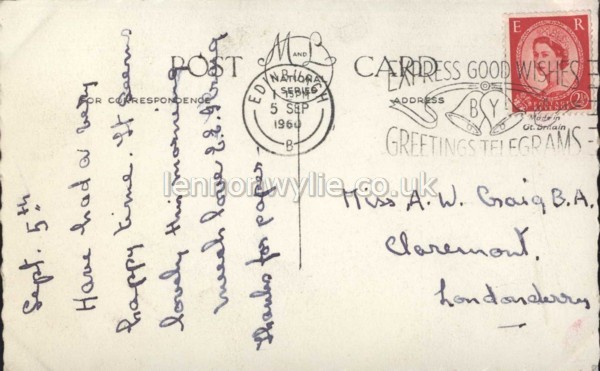 POST CARD
M AND B
NATIONAL SERIES
FOR CORRESPONDENCE
ADDRESS
EDINBURGH
5 SEP
1960
B
EXPRESS GOOD WISHES
BY
GREETINGS TELEGRAMS
E R
2½
Made in
Gt. Britain
lennonwylie.co.uk
Sept. 5th
Have had a very
happy time. It seems
lovely this morning
much love
Thanks for paper-
Miss A. W. Craig B.A.
Claremont,
Londonderry